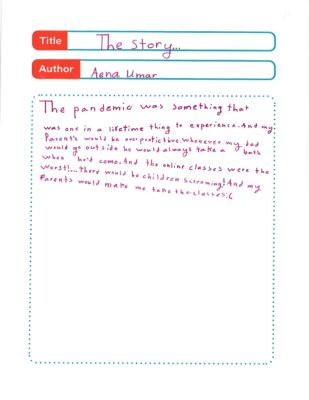 Title The Story...
Author Aena Umar
The pandemic was something that
was one in a lifetime thing to experience. And my
Parents would be overprotictive. Whenever my dad
would go outside he would always take a bath
when he'd come. And the online classes were the
worst!... there would be children screaming! And my
Parents would make me take the classes:(